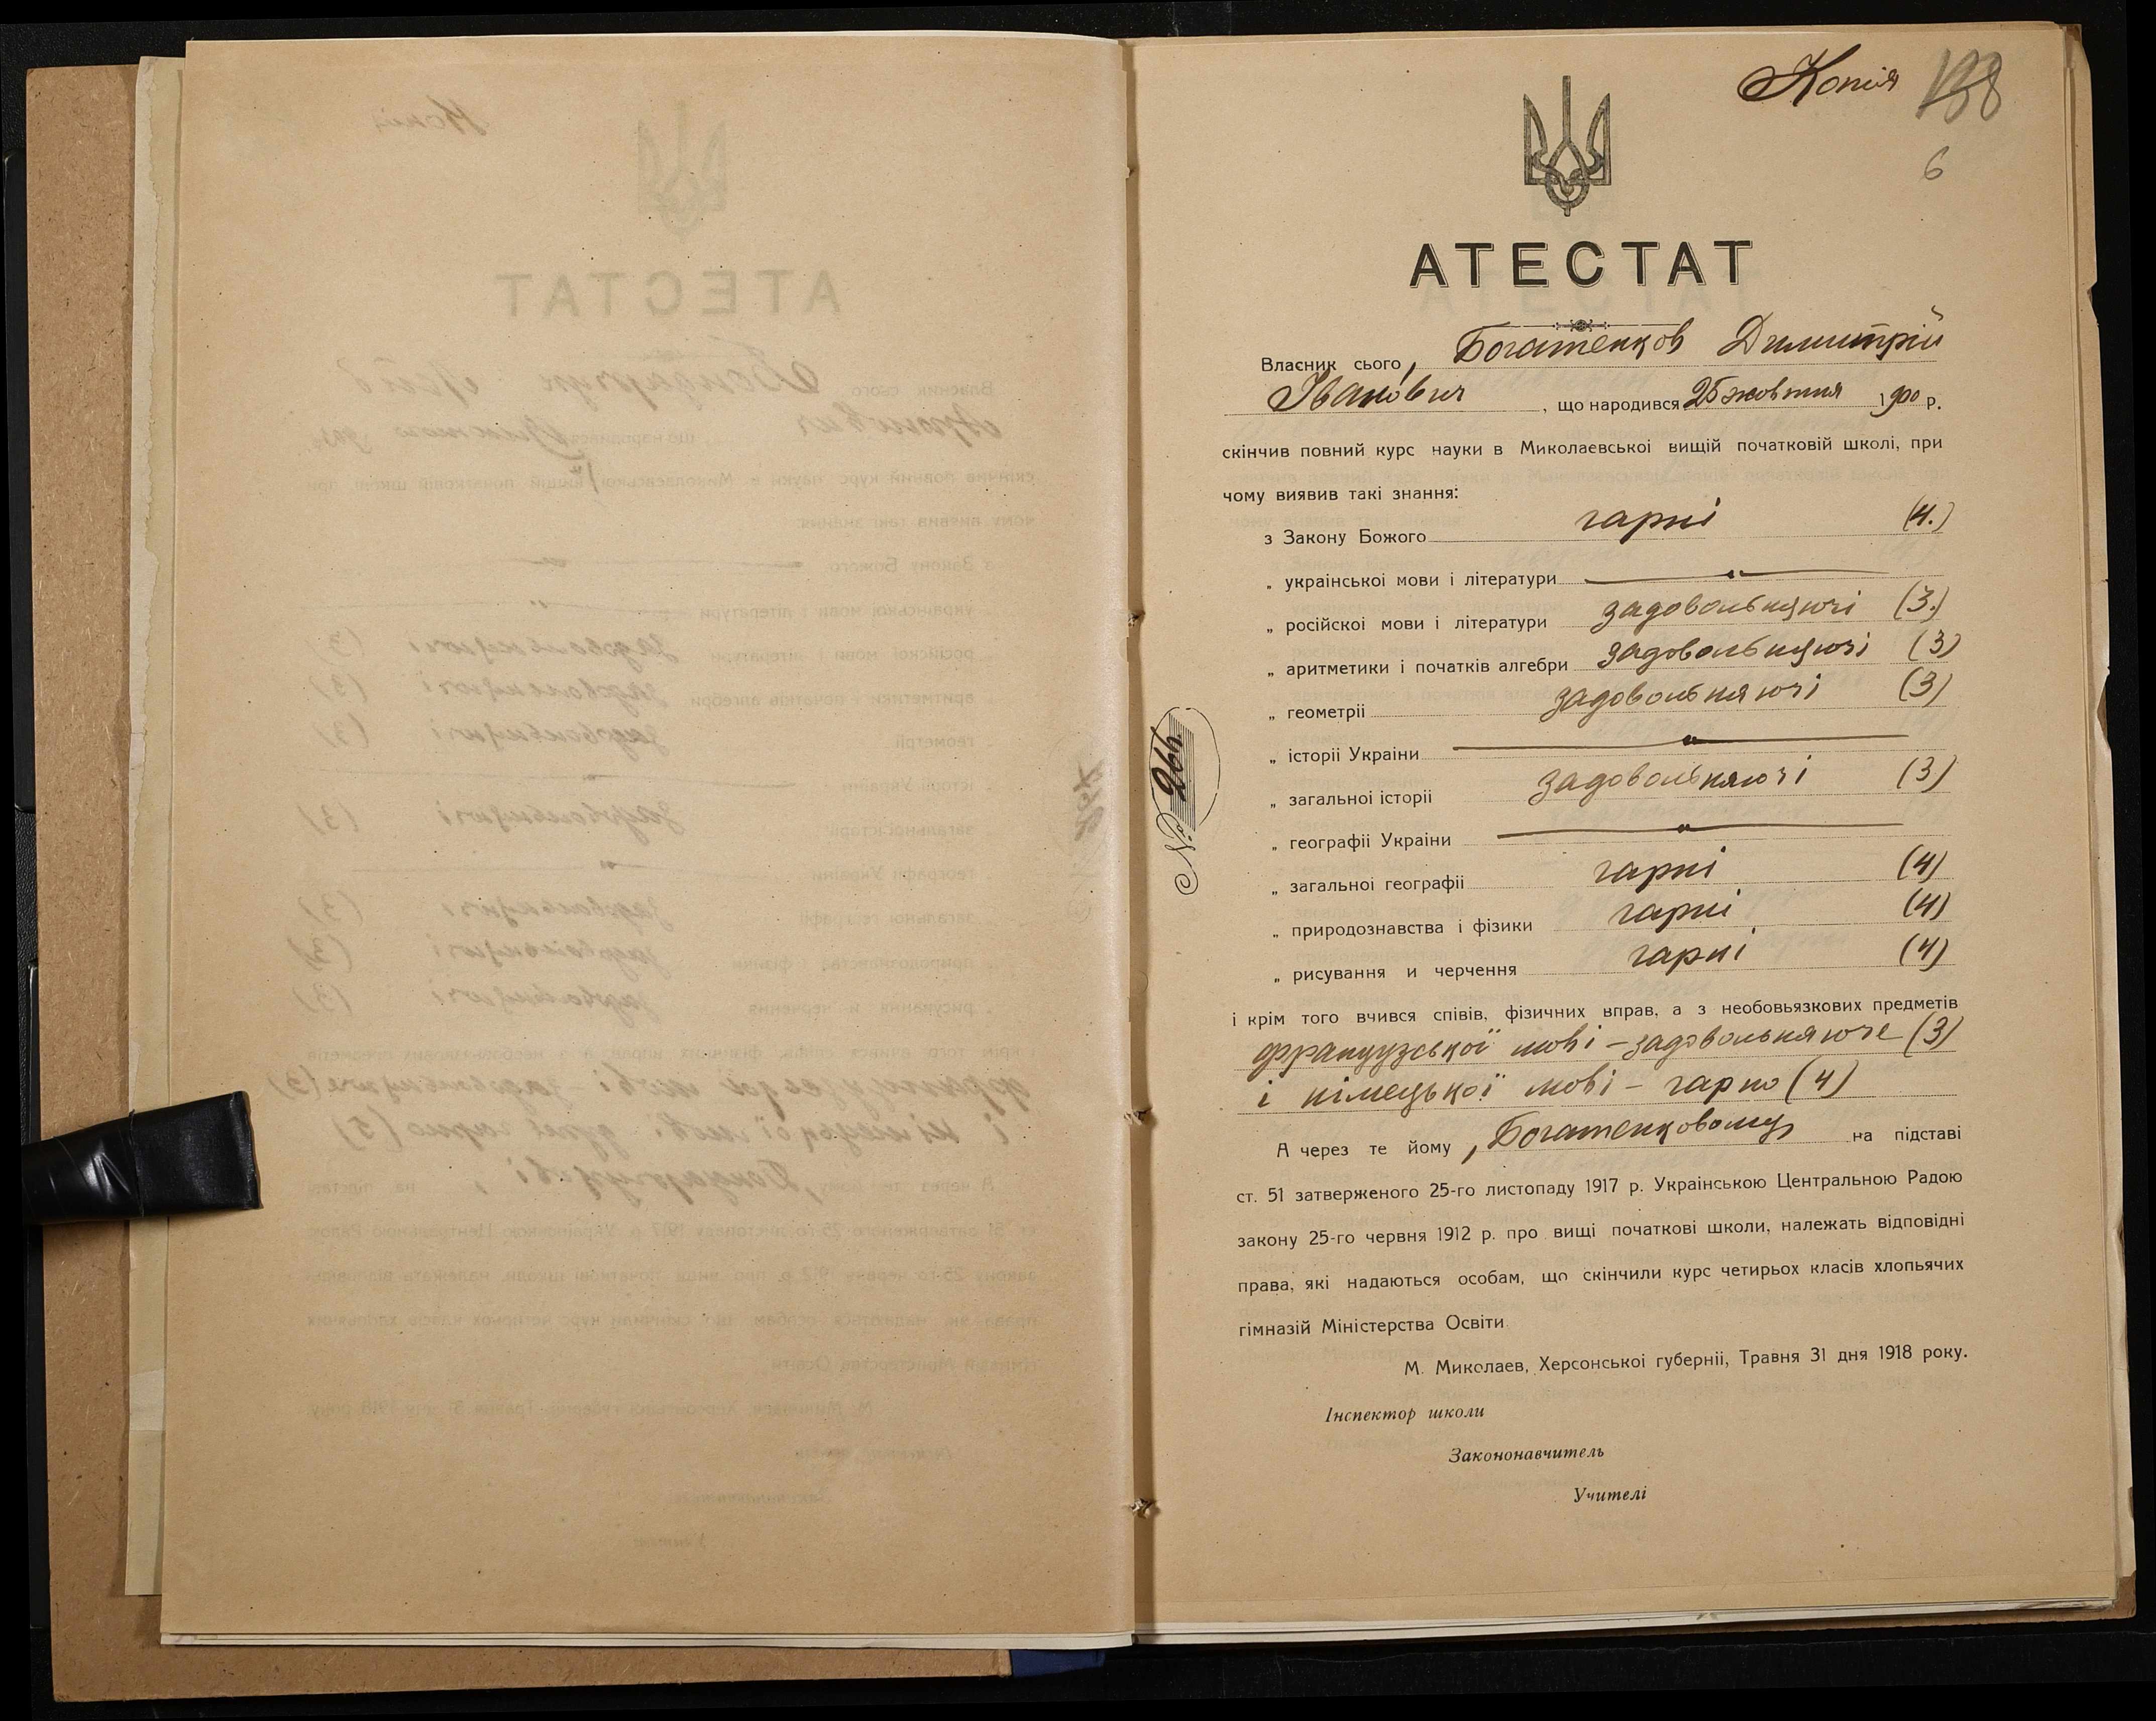 Копія
138
6
АТЕСТАТ
Власник сього, Богатенков Димитрій
Іванович, що народився 25 жовтня 1900 р.
скінчив повний курс науки в Миколаевськоі вищій початковій школі, при
чому виявив такі знання:
з Закону Божого гарні (4.)
„ украінськоі мови і літератури — " —
„ російскоі мови і літератури задовольняючі (3.)
„ аритметики і початків алгебри задовольняючі (3)
„ геометріі задовольняючі (3)
„ історіі Украіни — " —
„ загальноі історіі задовольняючі (3)
„ географіі Украіни — " —
„ загальноі географіі гарні (4)
„ природознавства і фізики гарні (4)
„ рисування и черчення гарні (4)
і крім того вчився співів, фізичних вправ, а з необовьязкових предметів
французської мові – задовольняюче (3)
і німецької мові – гарно (4)
А через те йому, Богатенковому на підставі
ст. 51 затверженого 25-го листопаду 1917 р. Украінською Центральною Радою
закону 25-го червня 1912 р. про вищі початкові школи, належать відповідні
права, які надаються особам, що скінчили курс четирьох класів хлопьячих
гімназій Міністерства Освіти.
М. Миколаев, Херсонськоі губерніі, Травня 31 дня 1918 року.
Інспектор школи
Закононавчитель
Учителі
№ 264